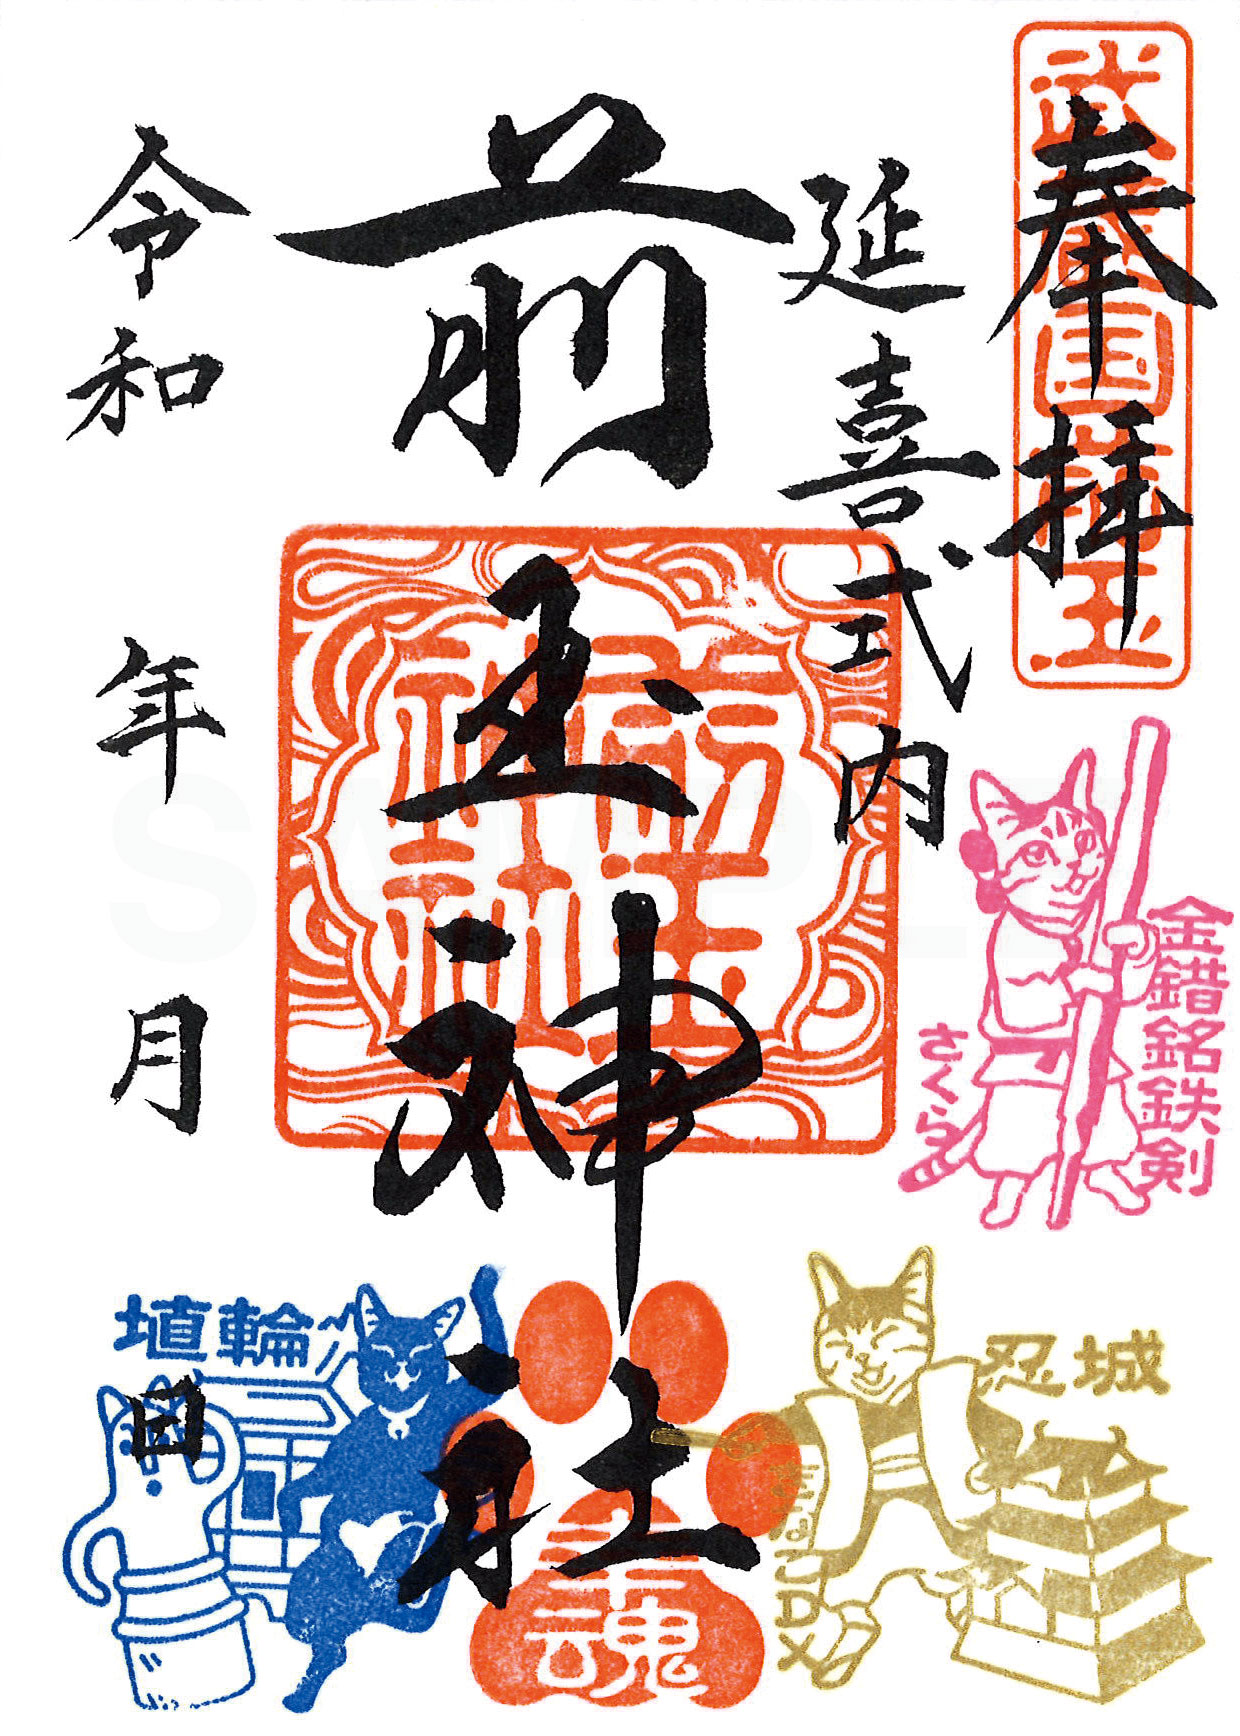 奉拝
武蔵国前玉
延喜式内
前玉神社
前玉神社
令和 年 月 日
金錯銘鉄剣
さくら
忍城
埴輪
幸魂